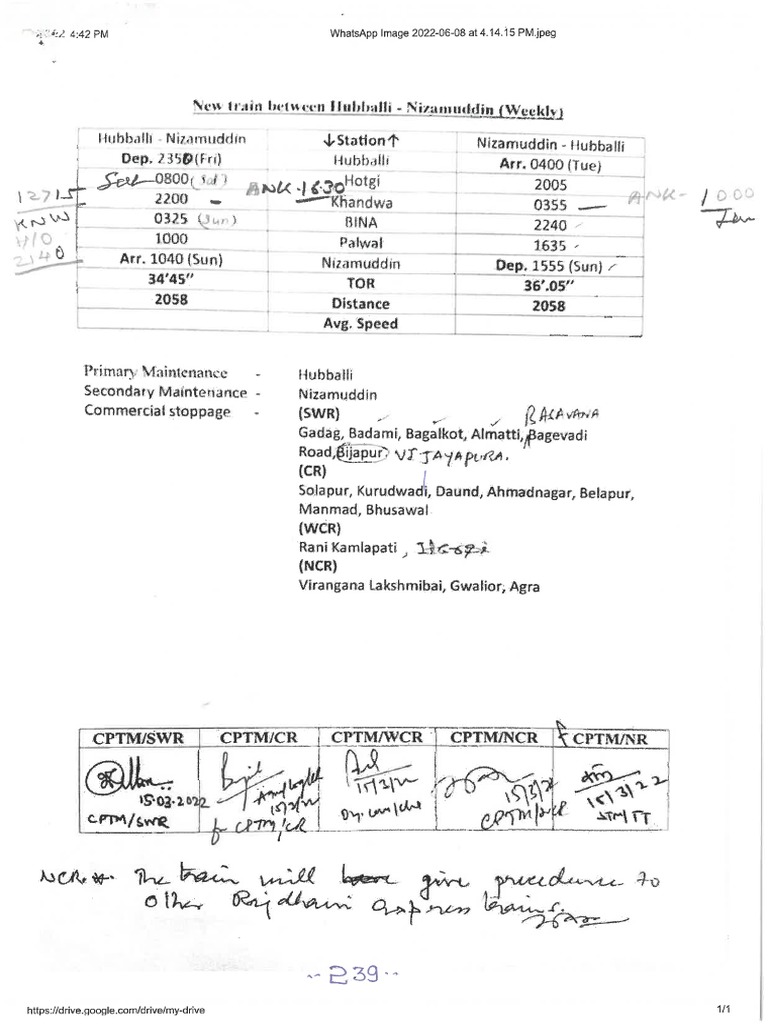 4:42 PM WhatsApp Image 2022-06-08 at 4.14.15 PM.jpeg
New train between Hubballi - Nizamuddin (Weekly)
Hubballi - Nizamuddin ↓Station↑ Nizamuddin - Hubballi
Dep. 2350 (Fri) Hubballi Arr. 0400 (Tue)
0800 (Sat) ANK - 1630 Hotgi 2005
12715 2200 - Khandwa 0355 — ANK - 1000
KNW 0325 (Sun) BINA 2240
H/O 1000 Palwal 1635
2140 Arr. 1040 (Sun) Nizamuddin Dep. 1555 (Sun)
34'45" TOR 36'.05"
2058 Distance 2058
Avg. Speed
Primary Maintenance - Hubballi
Secondary Maintenance - Nizamuddin
Commercial stoppage - (SWR) BASAVANA
Gadag, Badami, Bagalkot, Almatti, Bagevadi
Road, Bijapur VIJAYAPURA.
(CR)
Solapur, Kurudwadi, Daund, Ahmadnagar, Belapur,
Manmad, Bhusawal
(WCR)
Rani Kamlapati ,
(NCR)
Virangana Lakshmibai, Gwalior, Agra
CPTM/SWR CPTM/CR CPTM/WCR CPTM/NCR f CPTM/NR
15-03-2022 15/3/22 15/3/22 15/3/22 15/3/22
CPTM/SWR f CPTM/CR CPTM/NCR STM/TT
NCR:- The train will give precedence to
other Rajdhani express trains.
--239--
https://drive.google.com/drive/my-drive 1/1